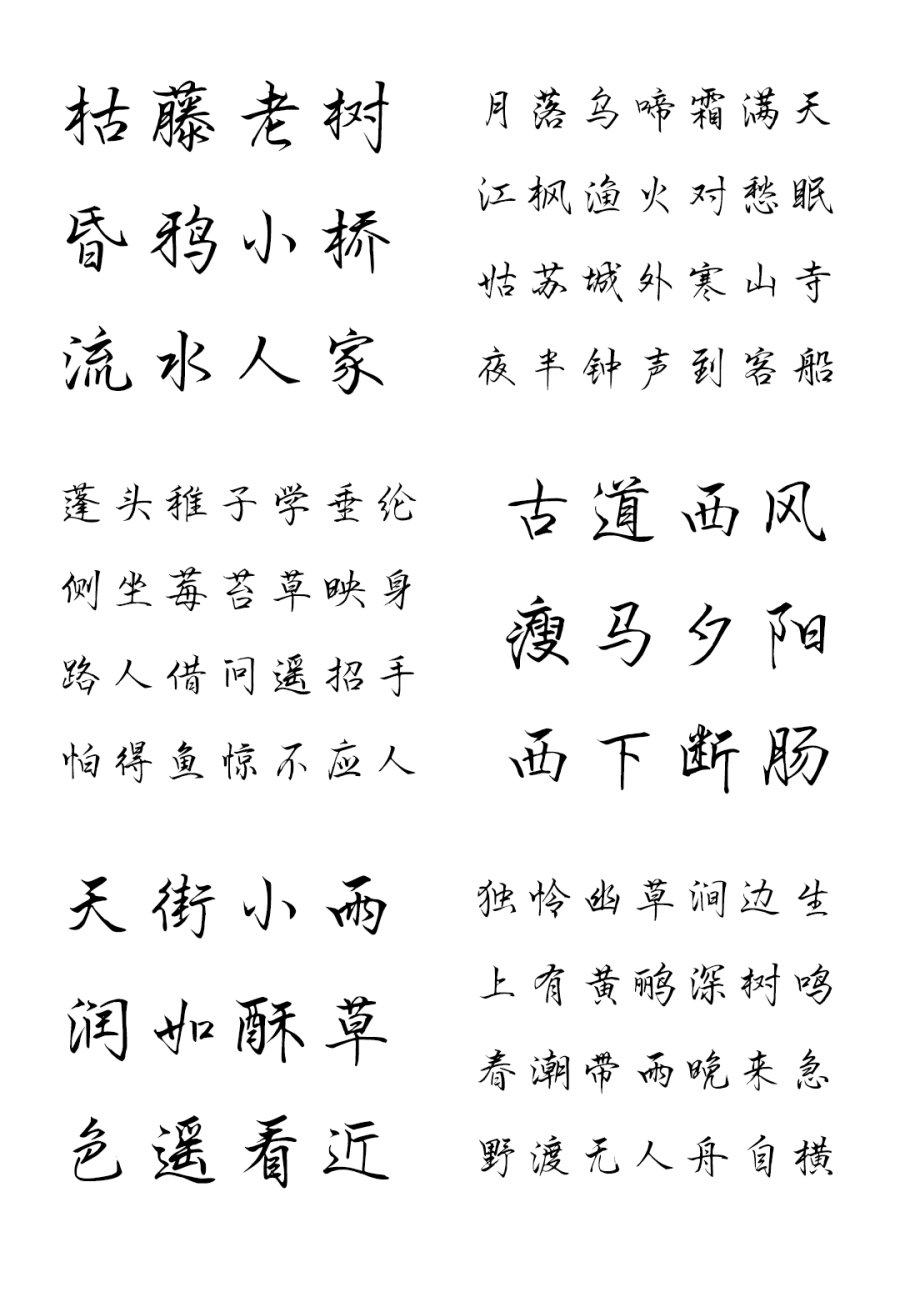 枯藤老树
昏鸦小桥
流水人家
月落乌啼霜满天
江枫渔火对愁眠
姑苏城外寒山寺
夜半钟声到客船
蓬头稚子学垂纶
侧坐莓苔草映身
路人借问遥招手
怕得鱼惊不应人
古道西风
瘦马夕阳
西下断肠
天街小雨
润如酥草
色遥看近
独怜幽草涧边生
上有黄鹂深树鸣
春潮带雨晚来急
野渡无人舟自横